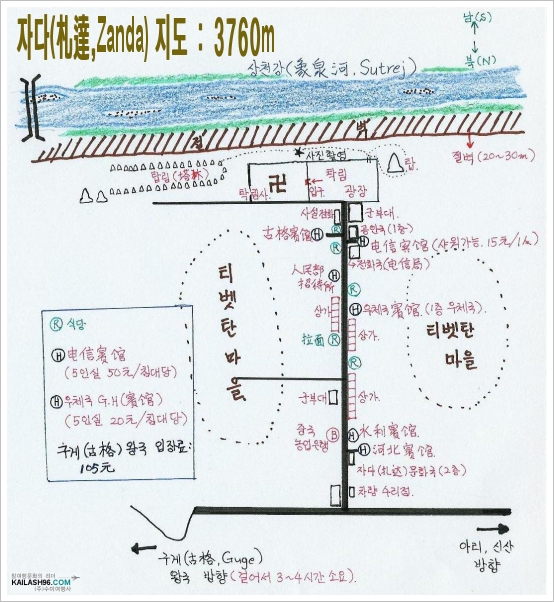 자다(札達,Zanda) 지도 : 3760m
남(S)
북(N)
상천강(象泉河, Sutrej)
절 벽
절벽 (20~30m)
★ 사진촬영
탑림(塔林)
탁림
탑.
탁림사.
卍
입구.
광장
사설전화
군부대.
공안국(1층)
古格賓館 Ⓗ
Ⓡ
Ⓗ 电信賓館 (샤워가능. 15元/1人)
→전화국(电信局)
人民部
招待所
Ⓗ
Ⓡ
티벳탄 마을
상가
Ⓗ 우체국賓館. (1층 우체국).
티벳탄
마을
拉面 Ⓡ
상가.
Ⓡ
Ⓡ 식당
Ⓗ 电信賓館
(5인실 50元/침대당)
Ⓗ 우체국 G.H(賓館)
(5인실 20元/침대당)
구게(古格) 왕국 입장료:
105元
군부대
상가
중국
농업은행
Ⓑ
Ⓗ 水利賓館.
Ⓗ 河北賓館.
자다(札达)문화국(2층)
차량 수리점.
구게(古格, Guge)
왕국 방향 (걸어서 3~4시간 소요).
아리, 신산
방향
참여행문화의 리더
KAILASH96.COM
(주)수미여행사